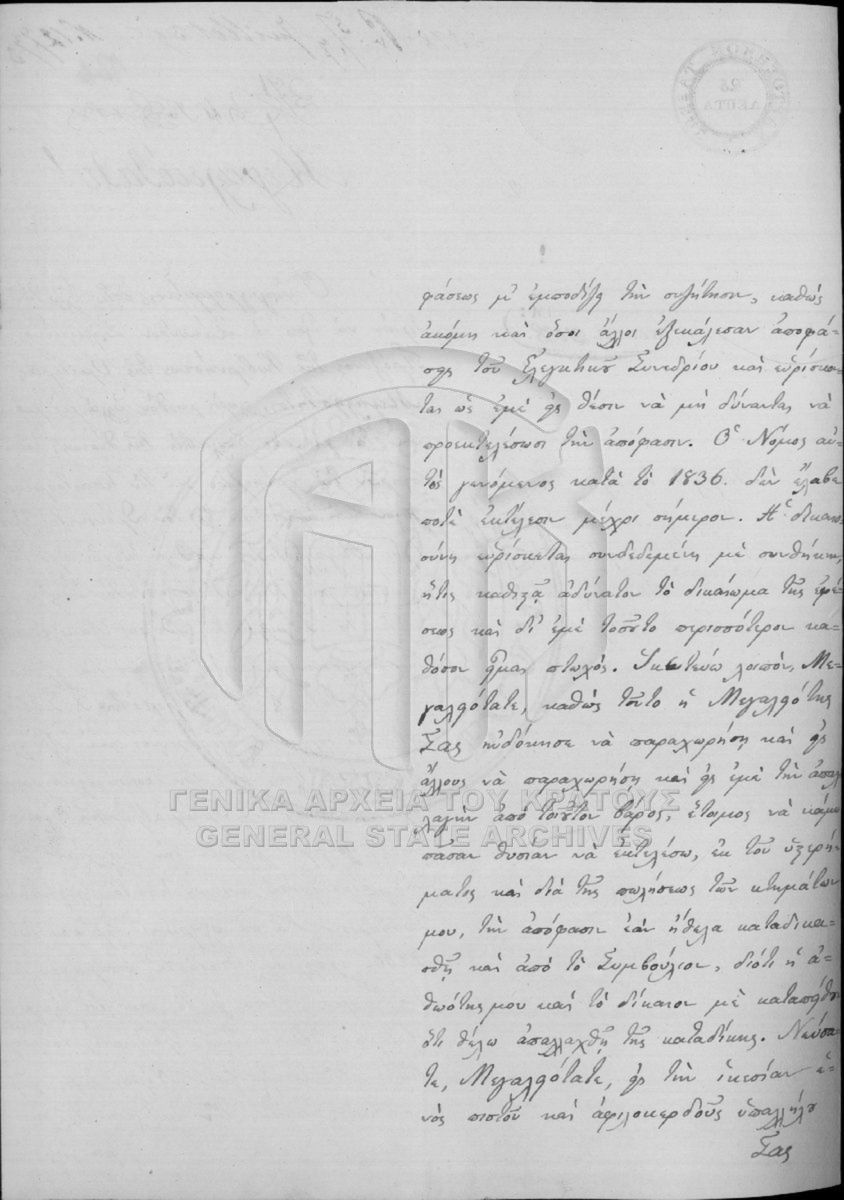 25
ΛΕΠΤΑ
φάσεως μ' ἐμποδίζῃ τὴν συζήτησιν, καθὼς
ἀκόμη καὶ ὅσοι ἄλλοι ἐξεκάλεσαν ἀποφά-
σεις τοῦ Ἐλεγκτικοῦ Συνεδρίου καὶ εὑρίσκον-
ται ὡς ἐμὲ εἰς θέσιν νὰ μὴ δύνανται νὰ
προεκτελέσωσι τὴν ἀπόφασιν. Ὁ Νόμος αὐ-
τὸς γενόμενος κατὰ τὸ 1836. δὲν ἔλαβε
ποτὲ ἐκτέλεσιν μέχρι σήμερον. Ἡ δικαιο-
σύνη εὑρίσκεται συνδεδεμένη μὲ συνθήκην,
ἥτις καθιστᾷ ἀδύνατον τὸ δικαίωμα τῆς ἐφέ-
σεως καὶ δι' ἐμὲ τοσοῦτο περισσότερον κα-
θόσον εἶμαι πτωχός. Ἱκετεύω λοιπόν, Με-
γαλειότατε, καθὼς τοῦτο ἡ Μεγαλειότης
Σας ηὐδόκησε νὰ παραχωρήσῃ καὶ εἰς
ἄλλους νὰ παραχωρήσῃ καὶ εἰς ἐμὲ τὴν ἀπαλ-
λαγὴν ἀπὸ τοιοῦτον βάρος, ἕτοιμος νὰ κάμω
πᾶσαν θυσίαν νὰ ἐκτελέσω, ἐκ τοῦ ὑστερή-
ματος καὶ διὰ τῆς πωλήσεως τῶν κτημάτων
μου, τὴν ἀπόφασιν ἐὰν ἤθελα καταδικα-
σθῆ καὶ ἀπὸ τὸ Συμβούλιον, διότι ἡ ἀ-
θωότης μου καὶ τὸ δίκαιον μὲ καταπείθει
ὅτι θέλω ἀπαλλαχθῆ τῆς καταδίκης. Νεύσα-
τε, Μεγαλειότατε, εἰς τὴν ἱκεσίαν ἑ-
νὸς πιστοῦ καὶ ἀφιλοκερδοῦς ὑπαλλήλου
Σας
ΓΕΝΙΚΑ ΑΡΧΕΙΑ ΤΟΥ ΚΡΑΤΟΥΣ
GENERAL STATE ARCHIVES